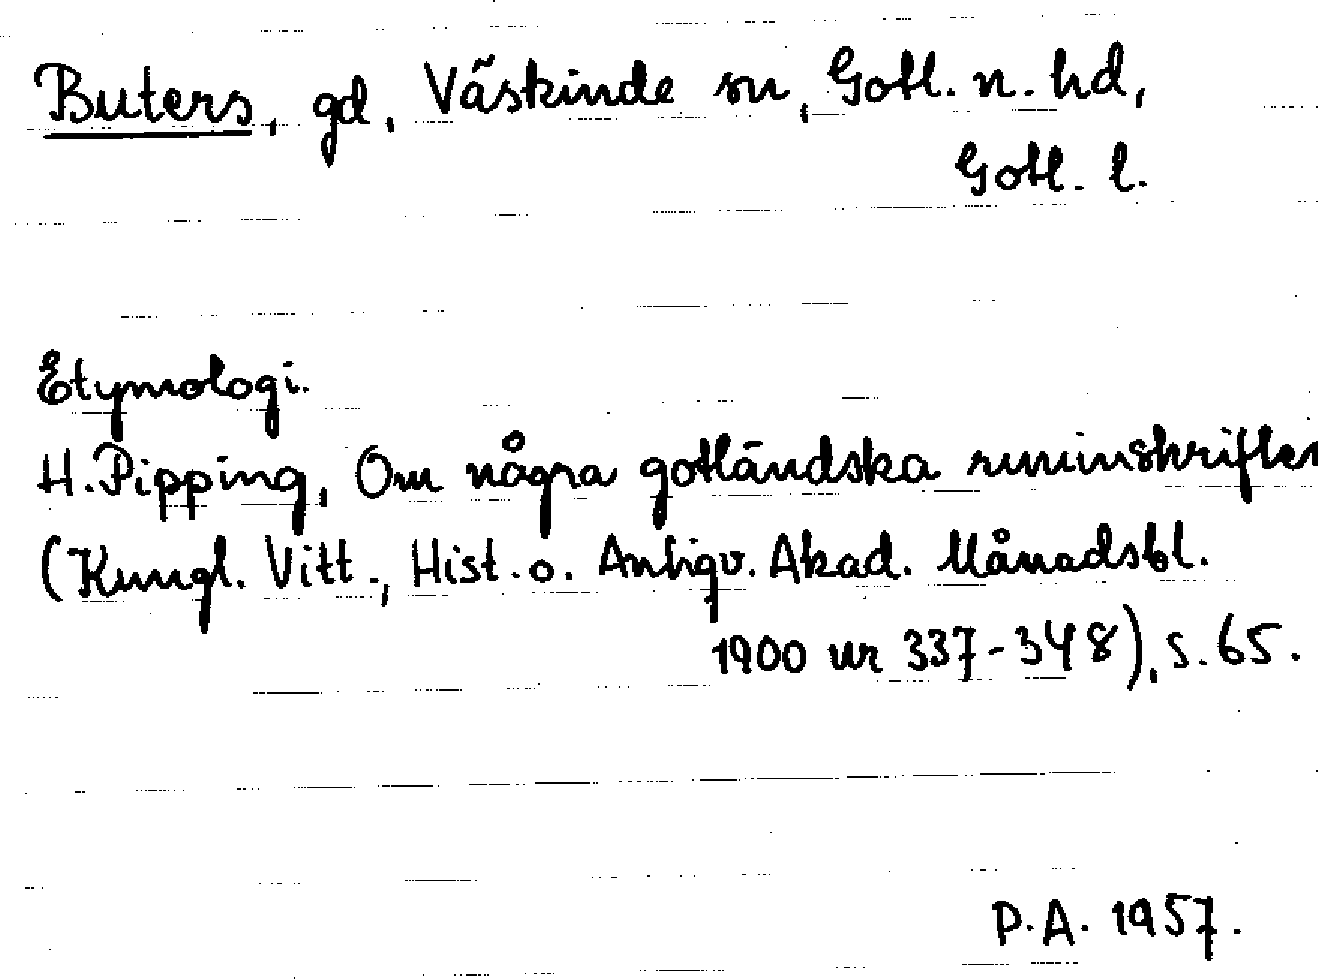 Buters, gd, Väskinde sn, Gotl. n. hd,
Gotl. l.
Etymologi.
H. Pipping, Om några gotländska runinskrifter
(Kungl. Vitt., Hist. o. Antiqv. Akad. Månadsbl.
1900 nr 337-348), s. 65.
P.A. 1957.